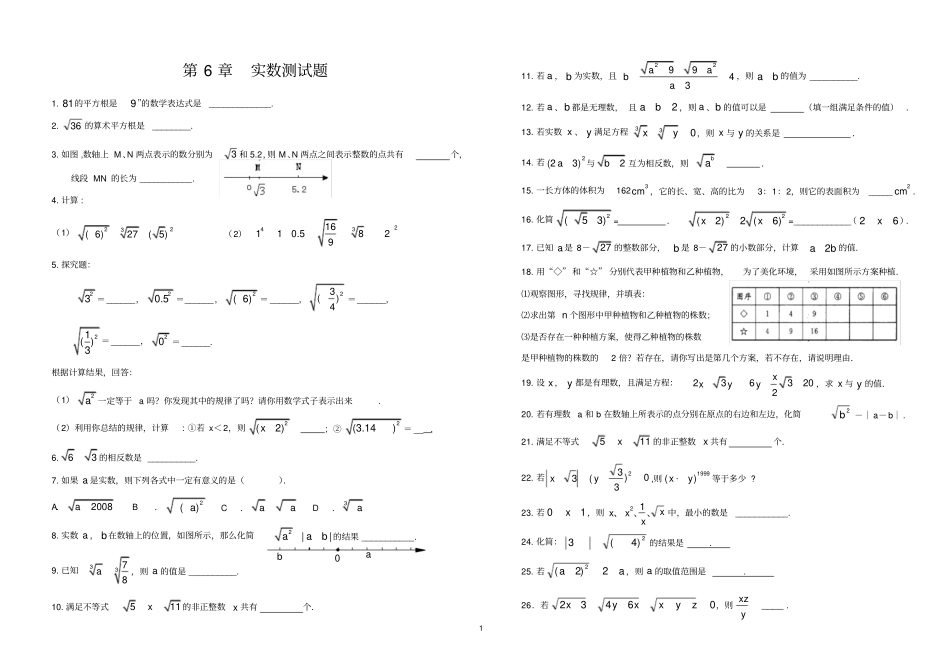 第 6 章 实数测试题
1. 81的平方根是 9”的数学表达式是 _____________.
2. √36 的算术平方根是 ________.
3. 如图 ,数轴上 M、N 两点表示的数分别为 √3 和 5.2, 则 M、N 两点之间表示整数的点共有 _______个,
线段 MN 的长为 ___________.
M N
0 √3 5.2
4. 计算 :
(1) √( 6)² ∛27 (√5)² (2) 1⁴ √1 0.5 √(16/9) ∛8 2²
5. 探究题:
√3² = ______, √0.5² = ______, √( 6)² = ______, √( 3/4)² = ______,
√(1/3)² = ______, √0² = ______.
根据计算结果,回答:
(1) √a² 一定等于 a 吗?你发现其中的规律了吗?请你用数学式子表示出来 .
(2)利用你总结的规律,计算 :①若 x<2,则 √(x 2)² _____; ② √(3.14 )² = ____.
6. √6 √3 的相反数是 __________.
7. 如果 a 是实数,则下列各式中一定有意义的是( ).
A. √a 2008 B . √( a)² C . √a √a D . ∛a
8. 实数 a , b 在数轴上的位置,如图所示,那么化简 √a² | a b | 的结果 ___________.
b 0 a
9. 已知 ∛a ∛(7/8) ,则 a 的值是 __________.
10. 满足不等式 √5 x √11 的非正整数 x 共有 _________个.
11. 若 a , b 为实数,且 b (√a² 9 √9 a²)/(a 3) 4 ,则 a b 的值为 __________.
12. 若 a 、b 都是无理数, 且 a b 2 ,则 a 、b 的值可以是 _______(填一组满足条件的值) .
13. 若实数 x 、 y 满足方程 ∛x ∛y 0 ,则 x 与 y 的关系是 ______________ .
14. 若 (2a 3)² 与 √b 2 互为相反数,则 √aᵇ _______ .
15. 一长方体的体积为 162cm³ ,它的长、宽、高的比为 3:1:2,则它的表面积为 _____ cm² .
16. 化简 √( √5 3)² =__________ . √(x 2)² 2√(x 6)² =____________( 2 x 6 ).
17. 已知 a 是 8-√27 的整数部分, b 是 8-√27 的小数部分,计算 a 2b 的值.
18. 用“◇”和“☆” 分别代表甲种植物和乙种植物, 为了美化环境, 采用如图所示方案种植.
⑴观察图形,寻找规律,并填表:
⑵求出第 n 个图形中甲种植物和乙种植物的株数;
⑶是否存在一种种植方案,使得乙种植物的株数
是甲种植物的株数的 2 倍?若存在,请你写出是第几个方案,若不存在,请说明理由.
图序 ① ② ③ ④ ⑤ ⑥
◇ 1 4 9
☆ 4 9 16
19. 设 x , y 都是有理数,且满足方程: 2x √3y 6y x/2 √3 20 ,求 x 与 y 的值.
20. 若有理数 a 和 b 在数轴上所表示的点分别在原点的右边和左边,化简 √b² -︱a-b︱.
21. 满足不等式 √5 x √11 的非正整数 x 共有 ________ 个.
22. 若 |x √3| (y √3/3)² 0 ,则 (x · y)¹⁹⁹⁹ 等于多少 ?
23. 若 0 x 1 ,则 x、x²、1/x、√x 中,最小的数是 ___________.
24. 化简: |3 √( 4)²| 的结果是 ____.___
25. 若 √(a 2)² 2 a ,则 a 的取值范围是 _____.____
26. 若 √2x 3 √4y 6x √x y z 0 ,则 xz/y _____ .
1